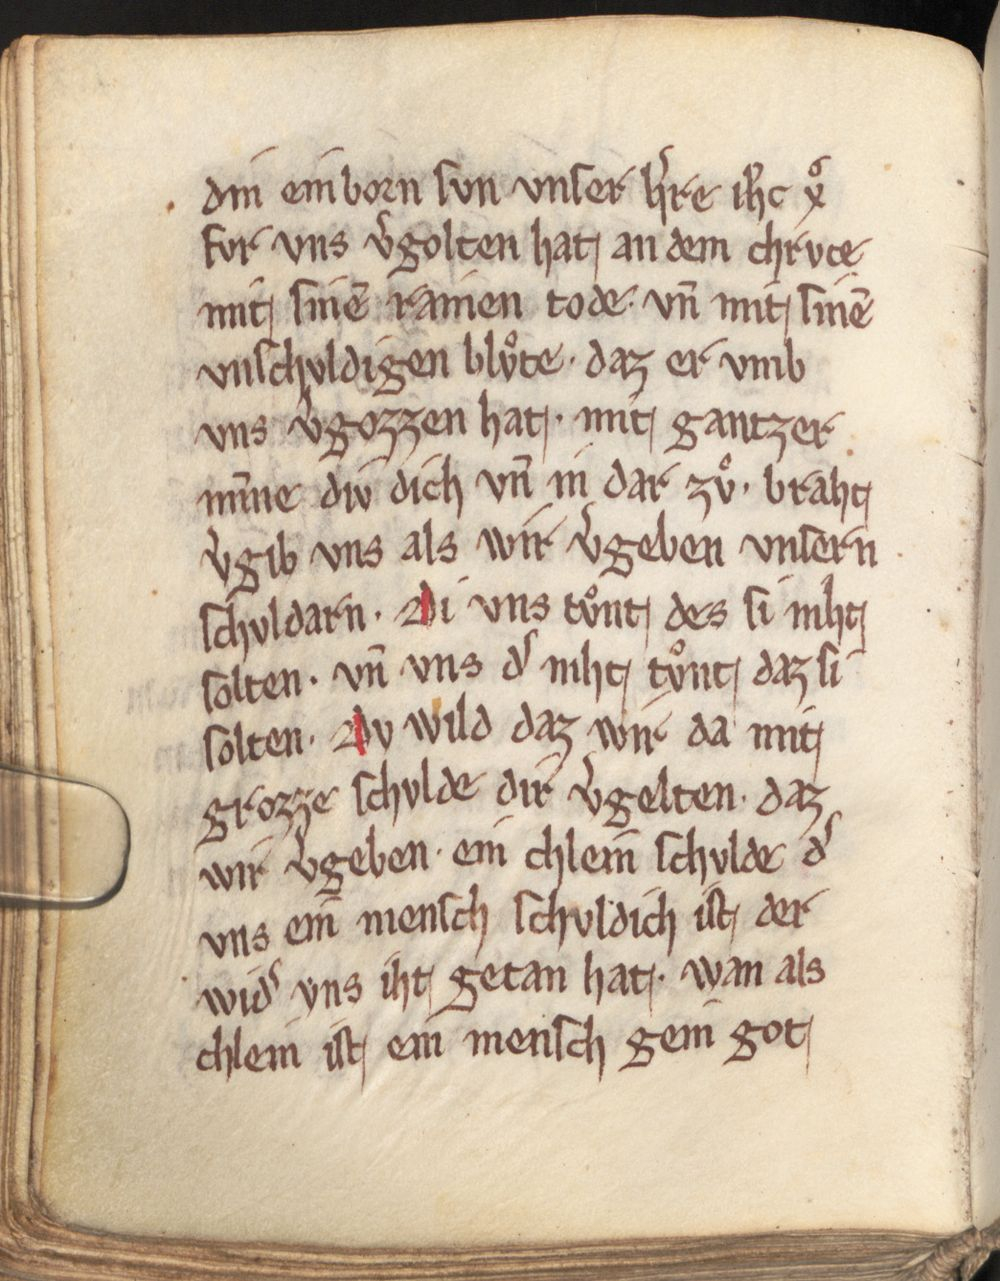 din einborn ſvn vnſer hͤre ihc xͦ
fvr vns v̓golten hat an dem chrvce
mit ſinē rainen tode· vn̄ mit ſinē
vnſchvldigen blvͦte· daz er vmb
vns v̓gozzen hat· mit gantzer
min̄e div dich vn̄ in dar zvͦ· braht
v̓gib vns als wir v̓geben vnſern
ſchvldarn· Di vns tvͦnt des ſi niht
ſolten· vn̄ vns dˢ niht tvͦnt daz ſi
ſolten· Dv wild daz wir da mit
grozze ſchvlde dir v̓gelten· daz
wir v̓geben· ein chlein ſchvlde dˢ
vns ein̄ menſch ſchvldich iſt der
widˢ vns iht getan hat· wan als
chlein iſt ein menſch gein got